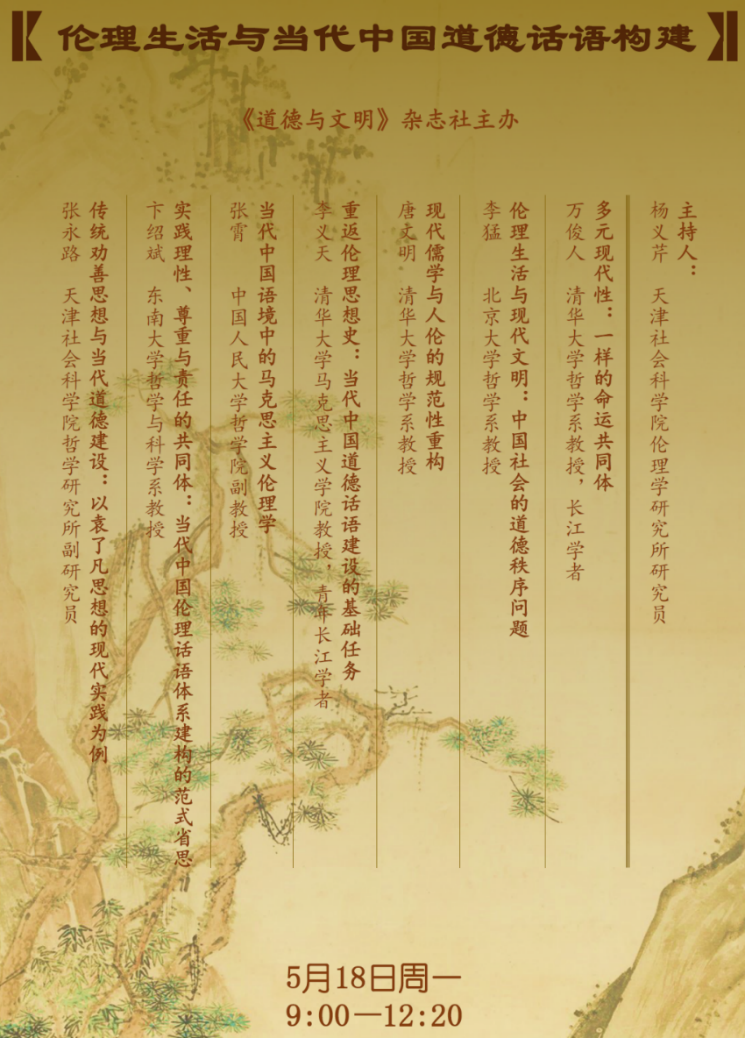 【伦理生活与当代中国道德话语构建】
《道德与文明》杂志社主办
主持人：
杨义芹 天津社会科学院伦理学研究所研究员
多元现代性：一样的命运共同体
万俊人 清华大学哲学系教授，长江学者
伦理生活与现代文明：中国社会的道德秩序问题
李猛 北京大学哲学系教授
现代儒学与人伦的规范性重构
唐文明 清华大学哲学系教授
重返伦理思想史：当代中国道德话语建设的基础任务
李义天 清华大学马克思主义学院教授，青年长江学者
当代中国语境中的马克思主义伦理学
张霄 中国人民大学哲学院副教授
实践理性、尊重与责任的共同体：当代中国伦理话语体系建构的范式省思
卞绍斌 东南大学哲学与科学系教授
传统劝善思想与当代道德建设：以袁了凡思想的现代实践为例
张永路 天津社会科学院哲学研究所副研究员
5月18日周一
9:00—12:20